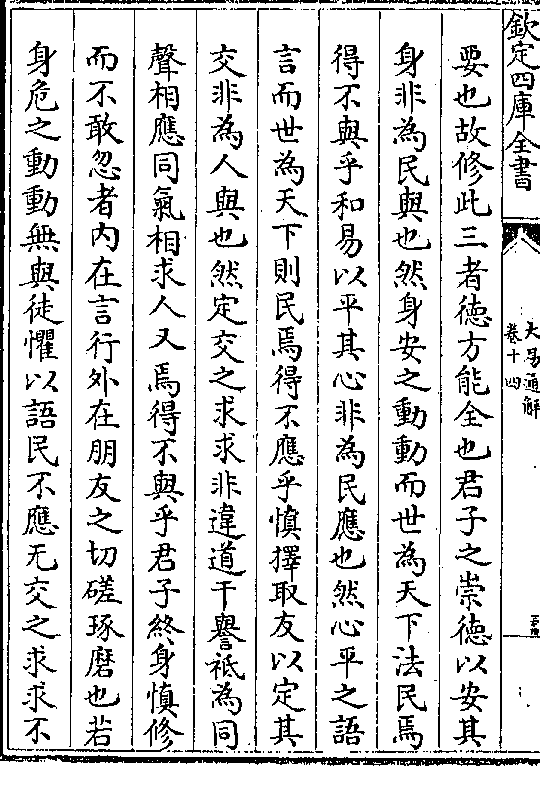 欽定四庫全書
大易通解
卷十四
要也故修此三者德方能全也君子之崇德以安其
身非為民與也然身安之動動而世為天下法民焉
得不與乎和易以平其心非為民應也然心平之語
言而世為天下則民焉得不應乎慎擇取友以定其
交非為人與也然定交之求求非違道干譽祗為同
聲相應同氣相求人又焉得不與乎君子終身慎修
而不敢忽者內在言行外在朋友之切磋琢磨也若
身危之動動無與徒懼以語民不應无交之求求不